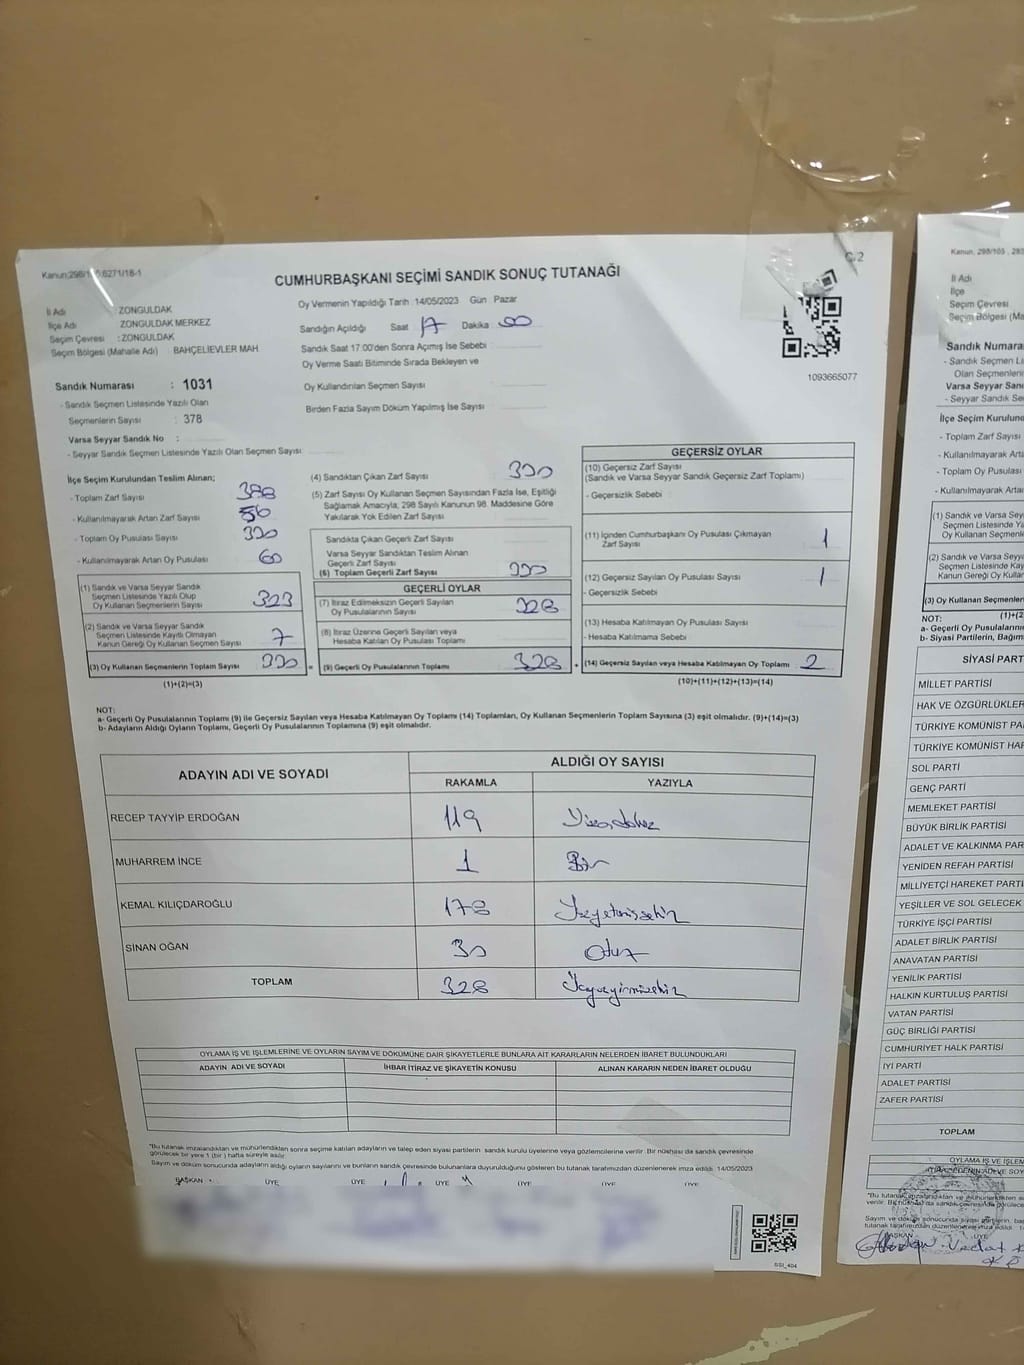 Kanun;298/105;6271/18-1
C/2
CUMHURBAŞKANI SEÇİMİ SANDIK SONUÇ TUTANAĞI
İl Adı : ZONGULDAK
İlçe Adı : ZONGULDAK MERKEZ
Seçim Çevresi : ZONGULDAK
Seçim Bölgesi (Mahalle Adı) : BAHÇELİEVLER MAH.
Sandık Numarası : 1031
- Sandık Seçmen Listesinde Yazılı Olan
Seçmenlerin Sayısı : 378
Varsa Seyyar Sandık No :
- Seyyar Sandık Seçmen Listesinde Yazılı Olan Seçmen Sayısı
Oy Vermenin Yapıldığı Tarih 14/05/2023 Gün Pazar
Sandığın Açıldığı Saat 17 Dakika 00
Sandık Saat 17:00'den Sonra Açılmış İse Sebebi
Oy Verme Saati Bitiminde Sırada Bekleyen ve
Oy Kullandırılan Seçmen Sayısı
Birden Fazla Sayım Döküm Yapılmış İse Sayısı
1093665077
İlçe Seçim Kurulundan Teslim Alınan;
- Toplam Zarf Sayısı
- Kullanılmayarak Artan Zarf Sayısı
- Toplam Oy Pusulası Sayısı
- Kullanılmayarak Artan Oy Pusulası 60
(1) Sandık ve Varsa Seyyar Sandık
Seçmen Listesinde Yazılı Olup
Oy Kullanan Seçmenlerin Sayısı 323
(2) Sandık ve Varsa Seyyar Sandık
Seçmen Listesinde Kayıtlı Olmayan
Kanun Gereği Oy Kullanan Seçmen Sayısı 7
(3) Oy Kullanan Seçmenlerin Toplam Sayısı 330 =
(1)+(2)=(3)
(4) Sandıktan Çıkan Zarf Sayısı 330
(5) Zarf Sayısı Oy Kullanan Seçmen Sayısından Fazla İse, Eşitliği
Sağlamak Amacıyla; 298 Sayılı Kanunun 98. Maddesine Göre
Yakılarak Yok Edilen Zarf Sayısı
Sandıkta Çıkan Geçerli Zarf Sayısı
Varsa Seyyar Sandıktan Teslim Alınan
Geçerli Zarf Sayısı
(6) Toplam Geçerli Zarf Sayısı 330
GEÇERLİ OYLAR
(7) İtiraz Edilmeksizin Geçerli Sayılan
Oy Pusulalarının Sayısı 328
(8) İtiraz Üzerine Geçerli Sayılan veya
Hesaba Katılan Oy Pusulaları Toplamı
(9) Geçerli Oy Pusulalarının Toplamı 328 +
GEÇERSİZ OYLAR
(10) Geçersiz Zarf Sayısı
(Sandık ve Varsa Seyyar Sandık Geçersiz Zarf Toplamı)
- Geçersizlik Sebebi
(11) İçinden Cumhurbaşkanı Oy Pusulası Çıkmayan
Zarf Sayısı 1
(12) Geçersiz Sayılan Oy Pusulası Sayısı 1
- Geçersizlik Sebebi
(13) Hesaba Katılmayan Oy Pusulası Sayısı
- Hesaba Katılmama Sebebi
(14) Geçersiz Sayılan veya Hesaba Katılmayan Oy Toplamı 2
(10)+(11)+(12)+(13)=(14)
NOT:
a- Geçerli Oy Pusulalarının Toplamı (9) ile Geçersiz Sayılan veya Hesaba Katılmayan Oy Toplamı (14) Toplamları, Oy Kullanan Seçmenlerin Toplam Sayısına (3) eşit olmalıdır. (9)+(14)=(3)
b- Adayların Aldığı Oyların Toplamı, Geçerli Oy Pusulalarının Toplamına (9) eşit olmalıdır.
ADAYIN ADI VE SOYADI
ALDIĞI OY SAYISI
RAKAMLA YAZIYLA
RECEP TAYYİP ERDOĞAN 119
MUHARREM İNCE 1 Bir
KEMAL KILIÇDAROĞLU 178 Yüzyetmişsekiz
SİNAN OĞAN 30 Otuz
TOPLAM 328 Üçyüzyirmisekiz
OYLAMA İŞ VE İŞLEMLERİNE VE OYLARIN SAYIM VE DÖKÜMÜNE DAİR ŞİKAYETLERLE BUNLARA AİT KARARLARIN NELERDEN İBARET BULUNDUKLARI
ADAYIN ADI VE SOYADI İHBAR İTİRAZ VE ŞİKAYETİN KONUSU ALINAN KARARIN NEDEN İBARET OLDUĞU
"Bu tutanak imzalandıktan ve mühürlendikten sonra seçime katılan adayların ve talep eden siyasi partilerin sandık kurulu üyelerine veya gözlemcilerine verilir. Bir nüshası da sandık çevresinde
görülecek bir yere 1 (bir) hafta süreyle asılır.
Sayım ve döküm sonucunda adayların aldığı oyların sayılarını ve bunların sandık çevresinde bulunanlara duyurulduğunu gösteren bu tutanak tarafımızdan düzenlenerek imza edildi. 14/05/2023
BAŞKAN ÜYE ÜYE ÜYE ÜYE ÜYE
SSI_404
Kanun, 298/105
İl Adı
İlçe
Seçim Çevresi
Seçim Bölgesi (Ma
Sandık Numarası
- Sandık Seçmen Li
Olan Seçmenleri
Varsa Seyyar Sandı
- Seyyar Sandık Seç
İlçe Seçim Kurulun
- Toplam Zarf Sayısı
- Kullanılmayarak Arta
- Toplam Oy Pusulası
- Kullanılmayarak Arta
(1) Sandık ve Varsa Sey
Seçmen Listesinde Ya
Oy Kullanan Seçmenler
(2) Sandık ve Varsa Sey
Seçmen Listesinde Kay
Kanun Gereği Oy Kullan
(3) Oy Kullanan Seçmenler
NOT: (1)+(2
a- Geçerli Oy Pusulalarının
b- Siyasi Partilerin, Bağım
SİYASİ PART
MİLLET PARTİSİ
HAK VE ÖZGÜRLÜKLER
TÜRKİYE KOMÜNİST PA
TÜRKİYE KOMÜNİST HAR
SOL PARTİ
GENÇ PARTİ
MEMLEKET PARTİSİ
BÜYÜK BİRLİK PARTİSİ
ADALET VE KALKINMA PAR
YENİDEN REFAH PARTİSİ
MİLLİYETÇİ HAREKET PARTİ
YEŞİLLER VE SOL GELECEK
TÜRKİYE İŞÇİ PARTİSİ
ADALET BİRLİK PARTİSİ
ANAVATAN PARTİSİ
YENİLİK PARTİSİ
HALKIN KURTULUŞ PARTİSİ
VATAN PARTİSİ
GÜÇ BİRLİĞİ PARTİSİ
CUMHURİYET HALK PARTİSİ
İYİ PARTİ
ADALET PARTİSİ
ZAFER PARTİSİ
TOPLAM
OYLAMA İŞ VE İŞLEM
"Bu tutanak
Sayım ve döküm sonucunda siyasi partilerin
BAŞKAN ÜYE
Vedat